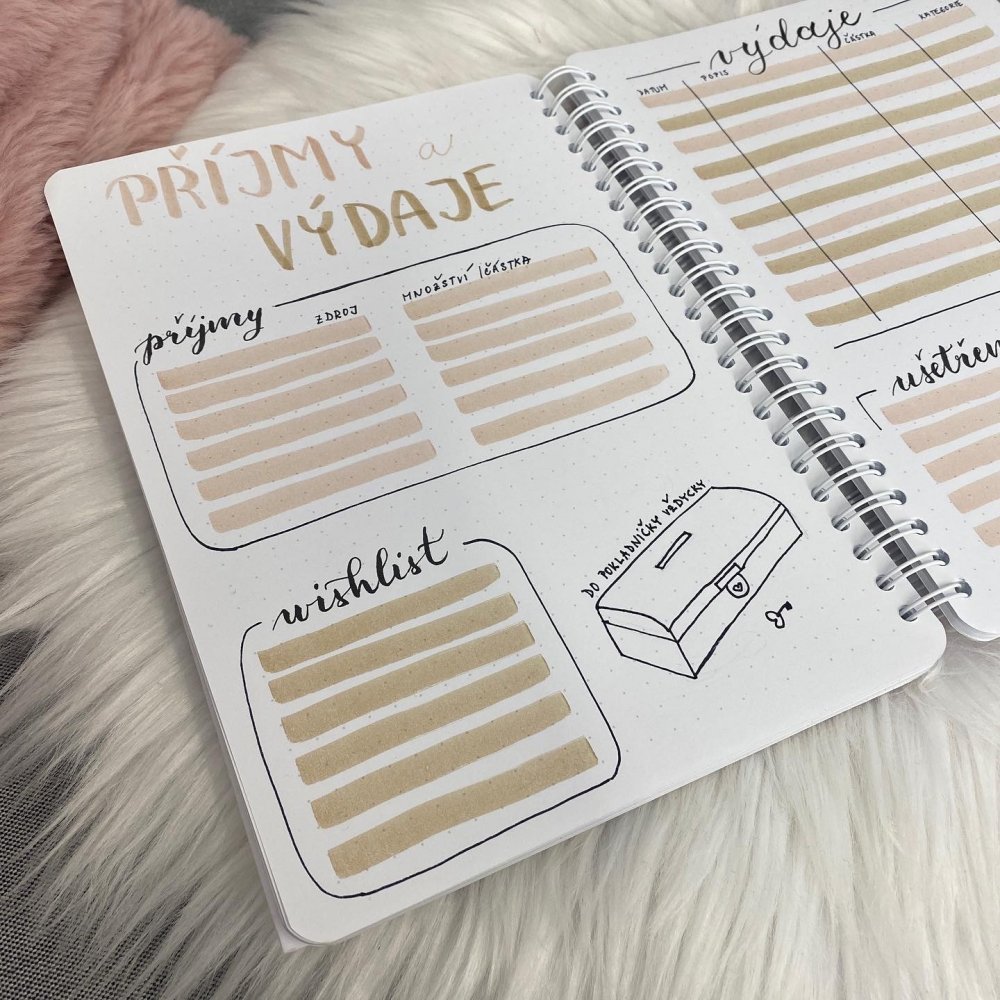 PŘÍJMY a
VÝDAJE
příjmy
ZDROJ
MNOŽSTVÍ / ČÁSTKA
wishlist
DO POKLADNIČKY VŽDYCKY
výdaje
DATUM
POPIS
ČÁSTKA
KATEGORIE